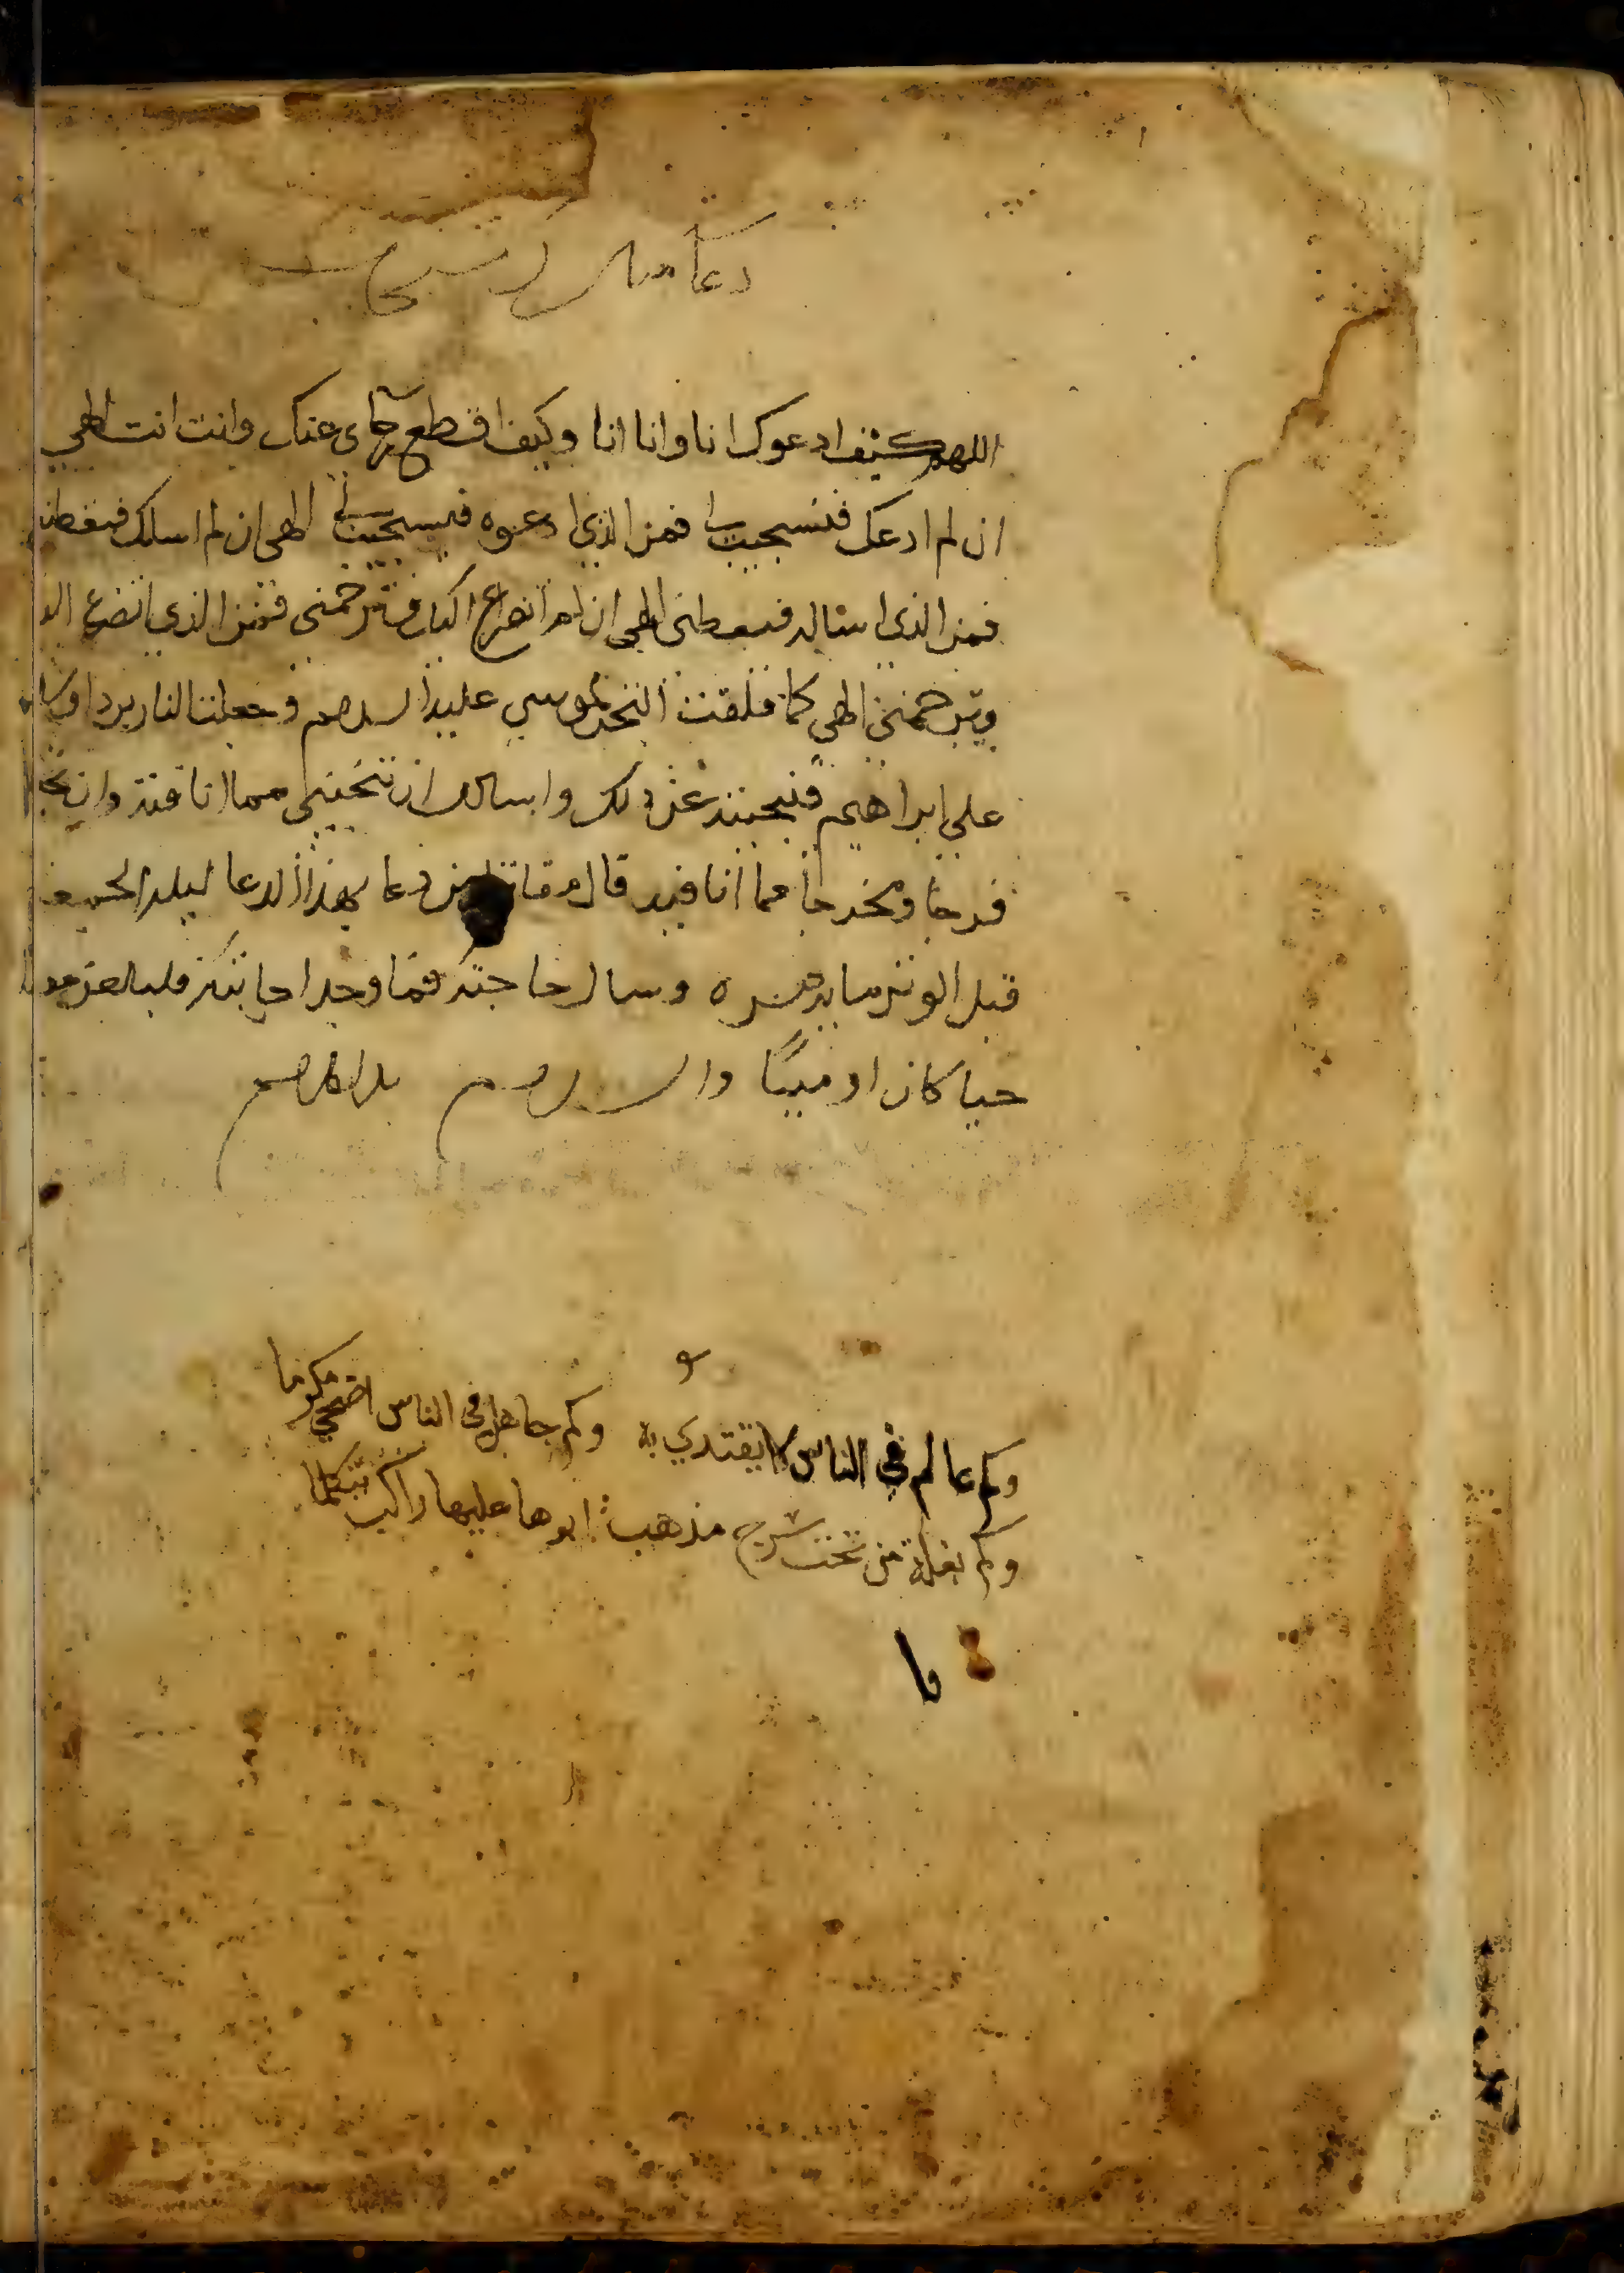 دعا مقاتل بن سليمان
اللهم كيف ادعوك انا وانا انا وكيف اقطع رجاى عنك وانت انت الهي
ان لم ادعك فتستجيب لي فمن الذي ادعوه فيستجيب لي الهي ان لم اسلك فتعطيني
فمن الذي اساله فيعطني الهي ان لم اتضرع اليك فترحمني فمن الذي اتضرع اليه
ويرحمني الهي كما فلقت البحر لموسي عليه السلام وجعلت النار بردا وسلاما
علي ابراهيم فنجيته عن ذلك واسالك ان تنجيني مما انا فيه وان تجعل
فرجا ومخرجا مما انا فيه قال مقاتل من دعا بهذا الدعا ليله الجمعه
قبل الوتر وسال حاجته فما وجد اجابته فليلعن
حيا كان او ميتا والسلام
وكم عالم في الناس لا يقتدي به وكم جاهل في الناس اضحي مكرما
وكم بغلة من تحت سرج مذهب ابوها عليها راكب تتكلما
وا